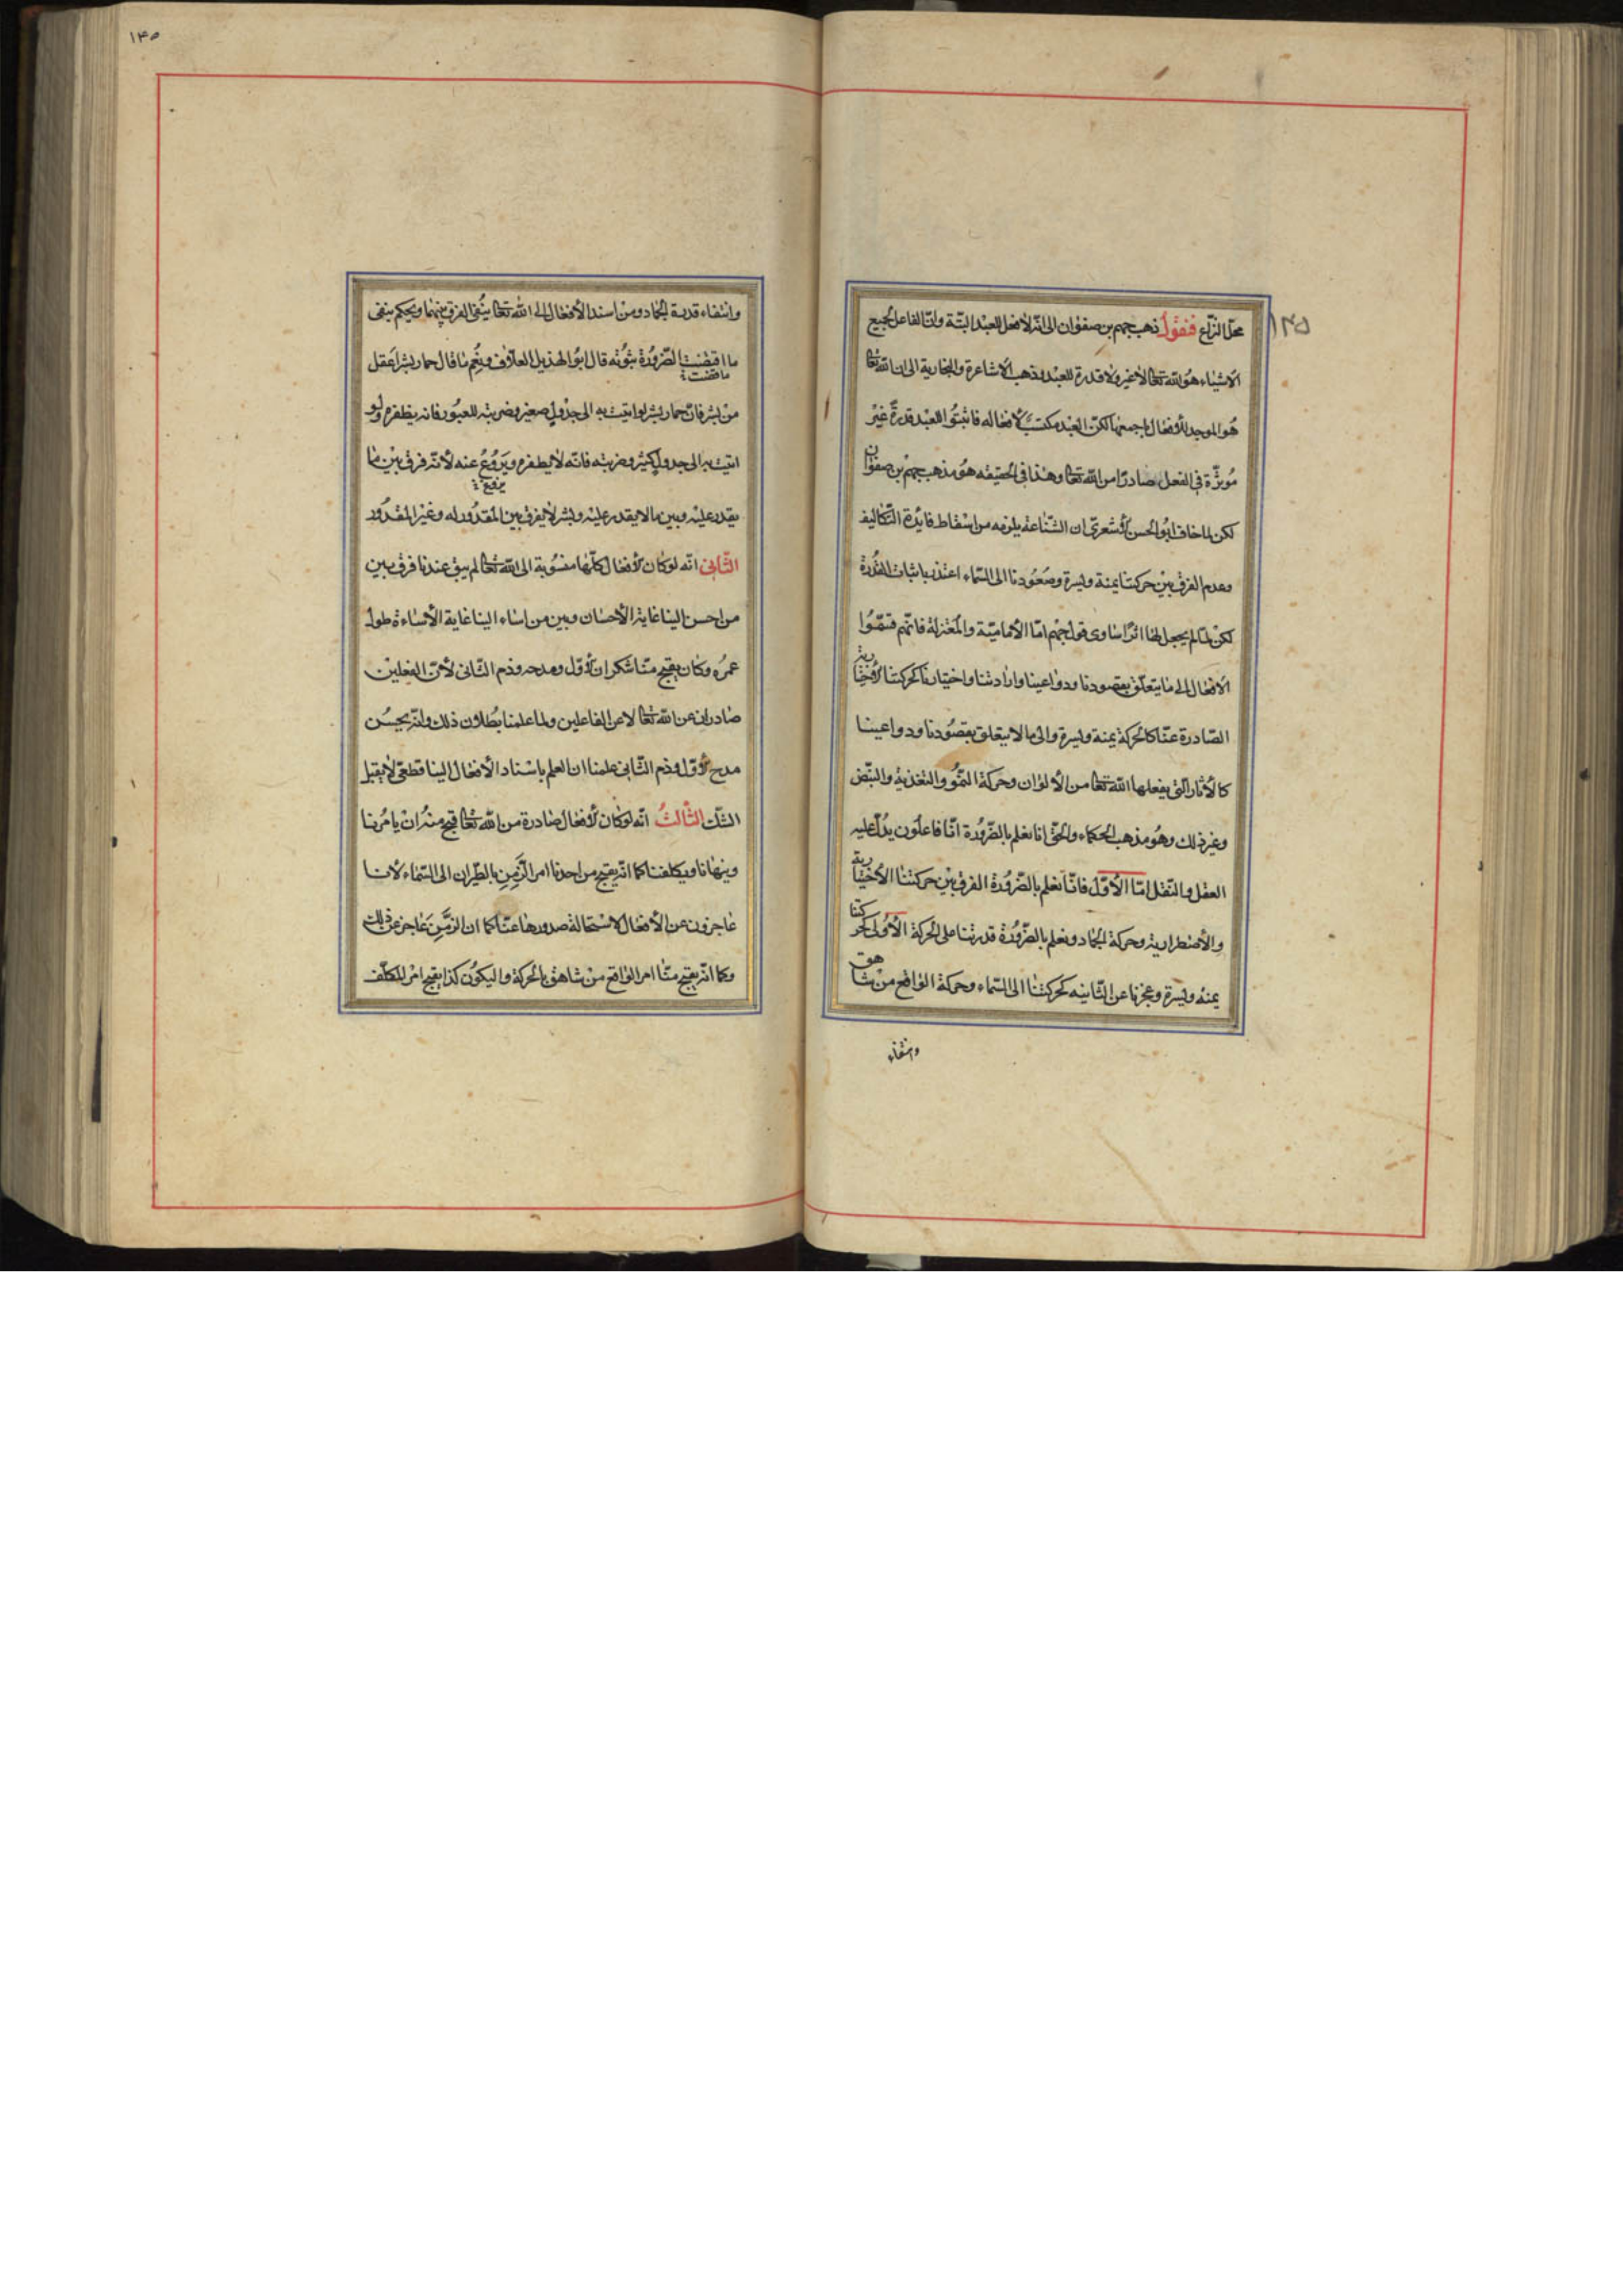 ١٣٥
محل النزاع فنقول ذهب جهم بن صفوان الى انه لا فعل للعبد البتة وان الفاعل لجميع
الاشياء هو الله تعالى لا غير ولا قدرة للعبد وذهب الاشاعرة والنجارية الى ان الله تعالى
هو الموجد للافعال باجمعها لكن العبد مكتسب لافعاله فاثبتوا للعبد قدرة غير
مؤثرة في الفعل صادرا من الله تعالى وهذا في الحقيقه هو مذهب جهم بن صفوان
لكن لما خاف ابو الحسن الاشعري ان الشناعة يلزمه من اسقاط فائدة التكاليف
وعدم الفرق بين حركتنا يمنة ويسرة وصعودنا الى السماء اعتذر باثبات القدرة
لكن لما لم يجعل لها اثرا ساوى قول جهم اما الأمامية والمعتزلة فانهم قسموا
الافعال الى ما يتعلق بقصودنا ودواعينا وارادتنا واختيارنا كحركتنا الاختيارية
الصادرة عنا كالحركة يمنة ويسرة والى ما لا يتعلق بقصودنا ودواعينا
كالأثار التي يفعلها الله تعالى من الألوان وحركة النمو والتغذية والنبض
وغير ذلك وهو مذهب الحكماء والحق انا نعلم بالضرورة انا فاعلون يدل عليه
العقل والنقل اما الأول فانا نعلم بالضرورة الفرق بين حركتنا الأختيارية
والأضطرارية وحركة الجماد ونعلم بالضرورة قدرتنا على الحركة الأولى كحركتنا
يمنة ويسرة وعجزنا عن الثانيه كحركتنا الى السماء وحركة الواقع من شاهق
وانتفاء
١٣٥
وانتفاء قدرة الجماد ومن اسند الأفعال الى الله تعالى ينفي الفرق بينهما ويحكم بنفي
ما اقتضت الضرورة ثبوته قال ابو الهذيل العلاف ونعم ما قال حمار بشر اعقل
ما قضت
من بشر فان حمار بشر لو اتيت به الى جدول صغير وضربته للعبور فانه يطفره ولو
اتيت به الى جدول كبير وضربته فانه لا يطفره ويروغ عنه لأنه فرق بين ما
يقدر عليه وبين ما لا يقدر عليه وبشر لا يفرق بين المقدور له وغير المقدور
الثاني انه لو كان الأفعال كلها منسوبة الى الله تعالى لم يبق عندنا فرق بين
من احسن الينا غاية الأحسان وبين من اساء الينا غاية الأساءة طول
عمره وكان يقبح منا شكر الأول ومدحه وذم الثاني لأن الفعلين
صادران عن الله تعالى لا عن الفاعلين ولما علمنا بطلان ذلك وانه يحسن
مدح الأول وذم الثاني علمنا ان العلم باسناد الأفعال الينا قطعي لا يقبل
الشك الثالث انه لو كان الأفعال صادرة من الله تعالى قبح منه ان يامرنا
وينهانا ويكلفنا كما انه يقبح من احدنا امر الزمن بالطيران الى السماء لأنا
عاجزون عن الأفعال لاستحالة صدورها عنا كما ان الزمن عاجز عن ذلك
وكما انه يقبح منا امر الواقع من شاهق بالحركة والسكون كذا يقبح امر المكلف